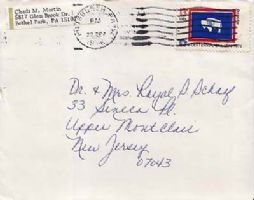 Cheli M. Martin
5817 Glen Beach Dr.
Bethel Park, PA 15102
PM
Dr. & Mrs. Royal S. Schaaf
33 Seneca Pl.
Upper Montclair
New Jersey
07043